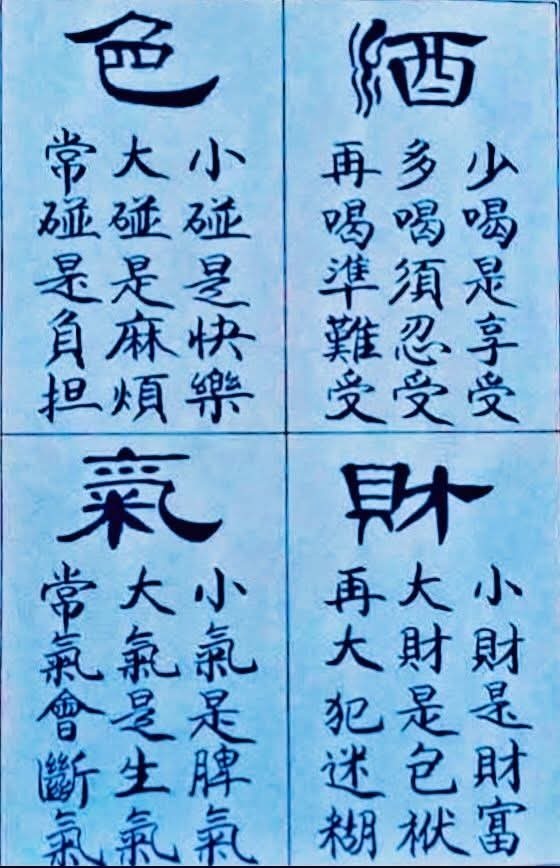 酒
少喝是享受
多喝須忍受
再喝準難受
色
小碰是快樂
大碰是麻煩
常碰是負担
財
小財是財富
大財是包袱
再大犯迷糊
氣
小氣是脾氣
大氣是生氣
常氣會斷氣